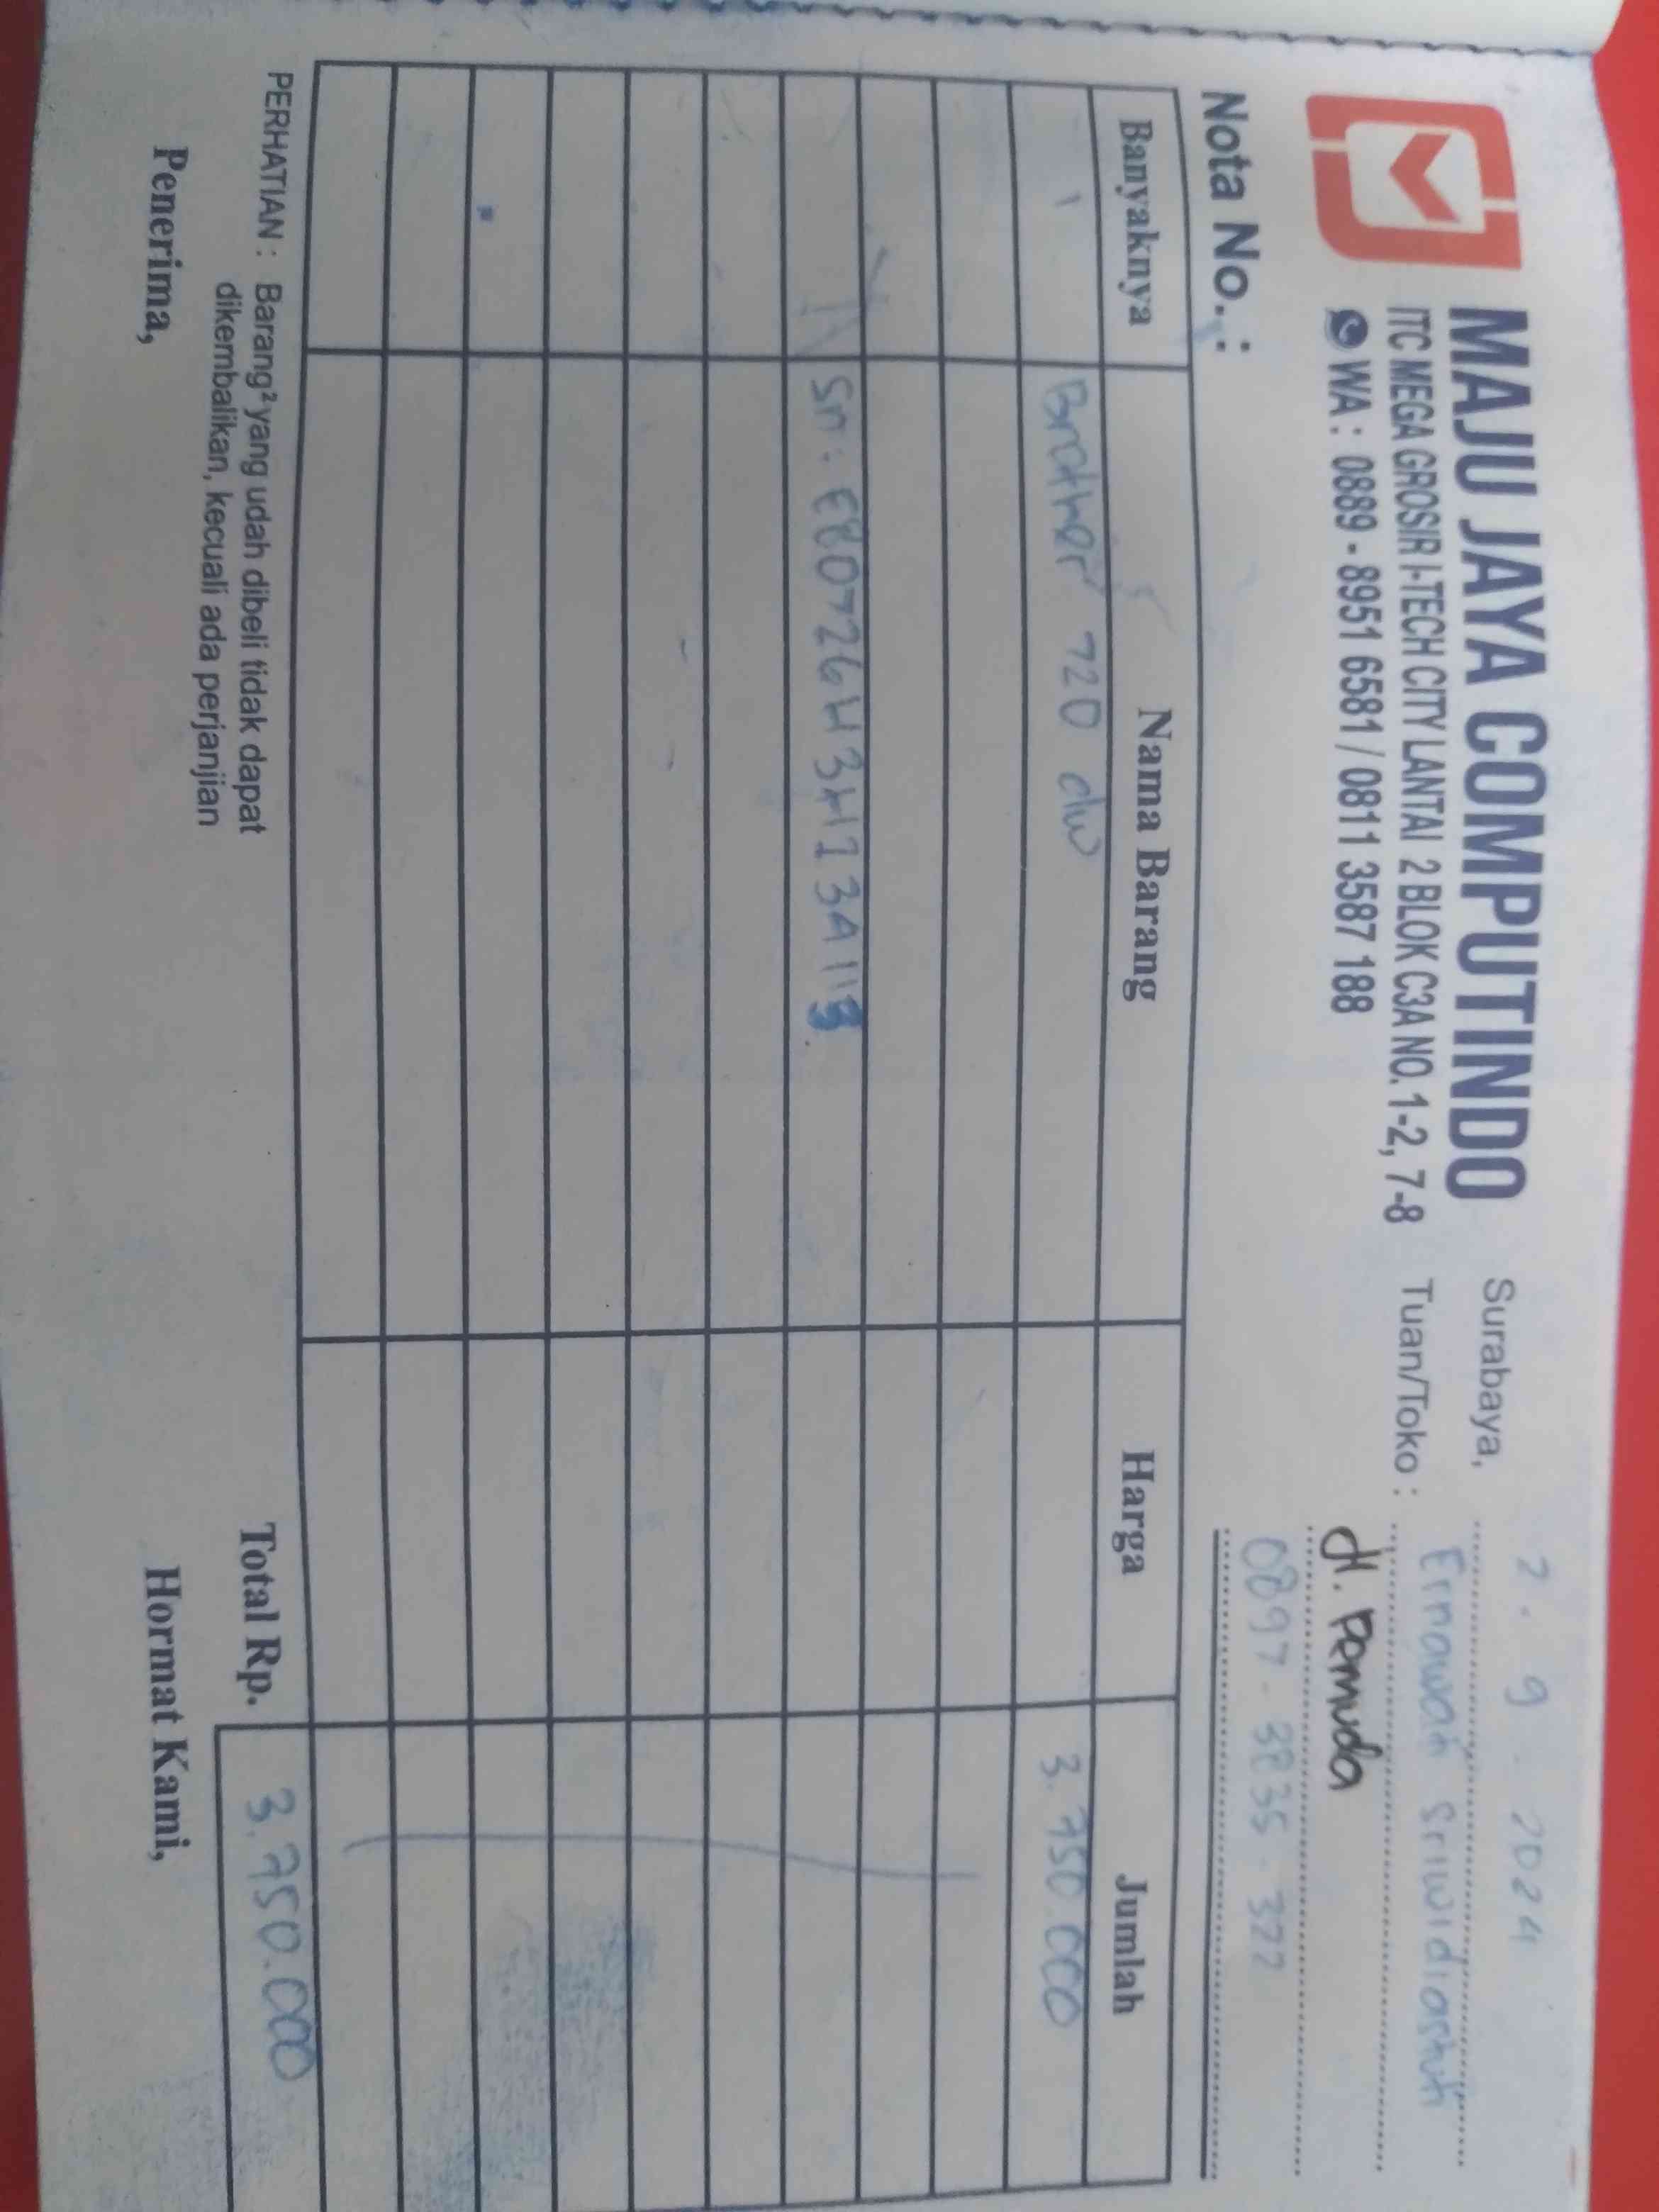 MAJU JAYA COMPUTINDO
ITC MEGA GROSIR I-TECH CITY LANTAI 2 BLOK C3A NO. 1-2, 7-8
WA : 0889 - 8951 6581 / 0811 3587 188
Surabaya, 2 . 9 . 2024
Tuan/Toko : Ernawati Sriwidiastuti
Jl. Pemuda
0897 - 3835 - 322
Nota No. :
Banyaknya Nama Barang Harga Jumlah
1 Brother 720 dw 3.750.000
Sn : E80726H3H13A113
PERHATIAN : Barang² yang udah dibeli tidak dapat
dikembalikan, kecuali ada perjanjian
Total Rp. 3.750.000
Penerima, Hormat Kami,